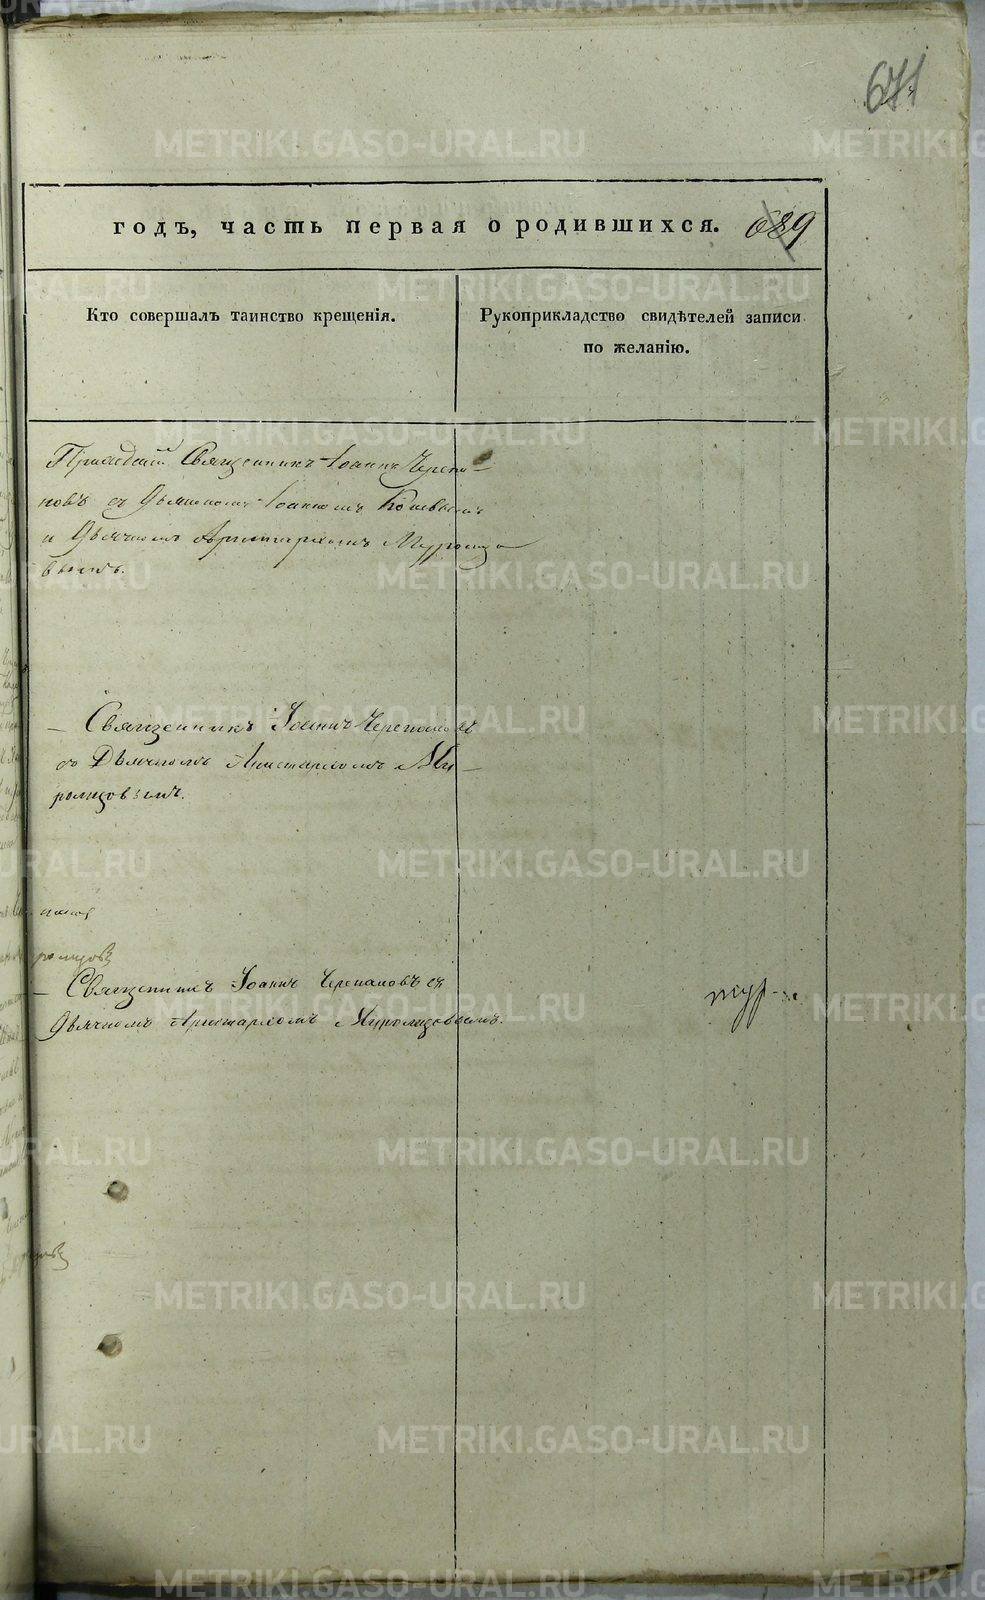 671
годъ, часть первая о родившихся. 689
Кто совершалъ таинство крещенія.
Рукоприкладство свидѣтелей записи
по желанію.
Священникъ Іоаннъ Черепа-
новъ съ Діакономъ Іоанномъ
и Дьячкомъ Аристархомъ Муромцо
вымъ.
— Священникъ Іоаннъ Черепановъ
съ Дьячкомъ Аристархомъ Му-
ромцовымъ.
— Священникъ Іоаннъ Черепановъ съ
Дьячкомъ Аристархомъ Муромцовымъ.
METRIKI.GASO-URAL.RU